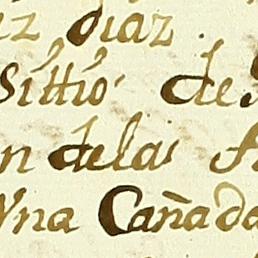 diaz
Sittio de
de la
Vna Cañada